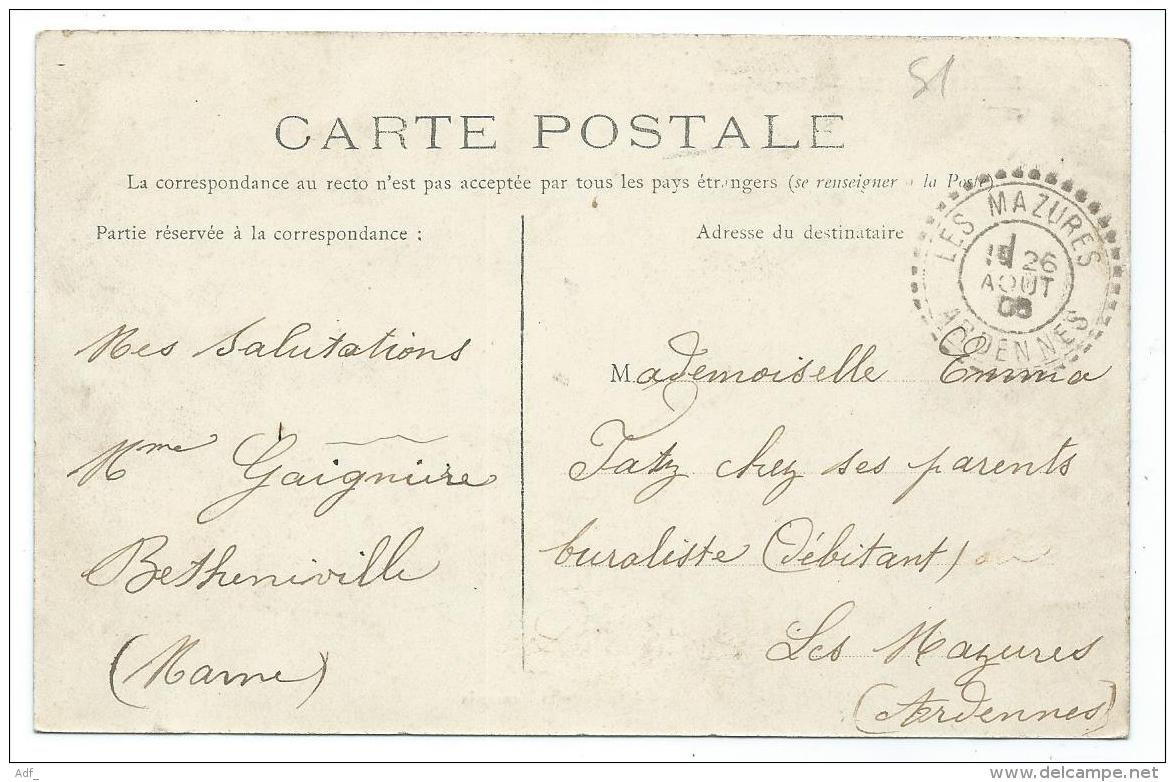 51
CARTE POSTALE
La correspondance au recto n'est pas acceptée par tous les pays étrangers (se renseigner à la Poste)
Partie réservée à la correspondance :
Mes Salutations
Mme Gaignière
Betheniville
(Marne)
Adresse du destinataire
LES MAZURES
26
AOUT
ARDENNES
Mademoiselle Emma
Tatz chez ses parents
buraliste (débitant)
Les Mazures
(Ardennes)
Adf_
delcampe.net